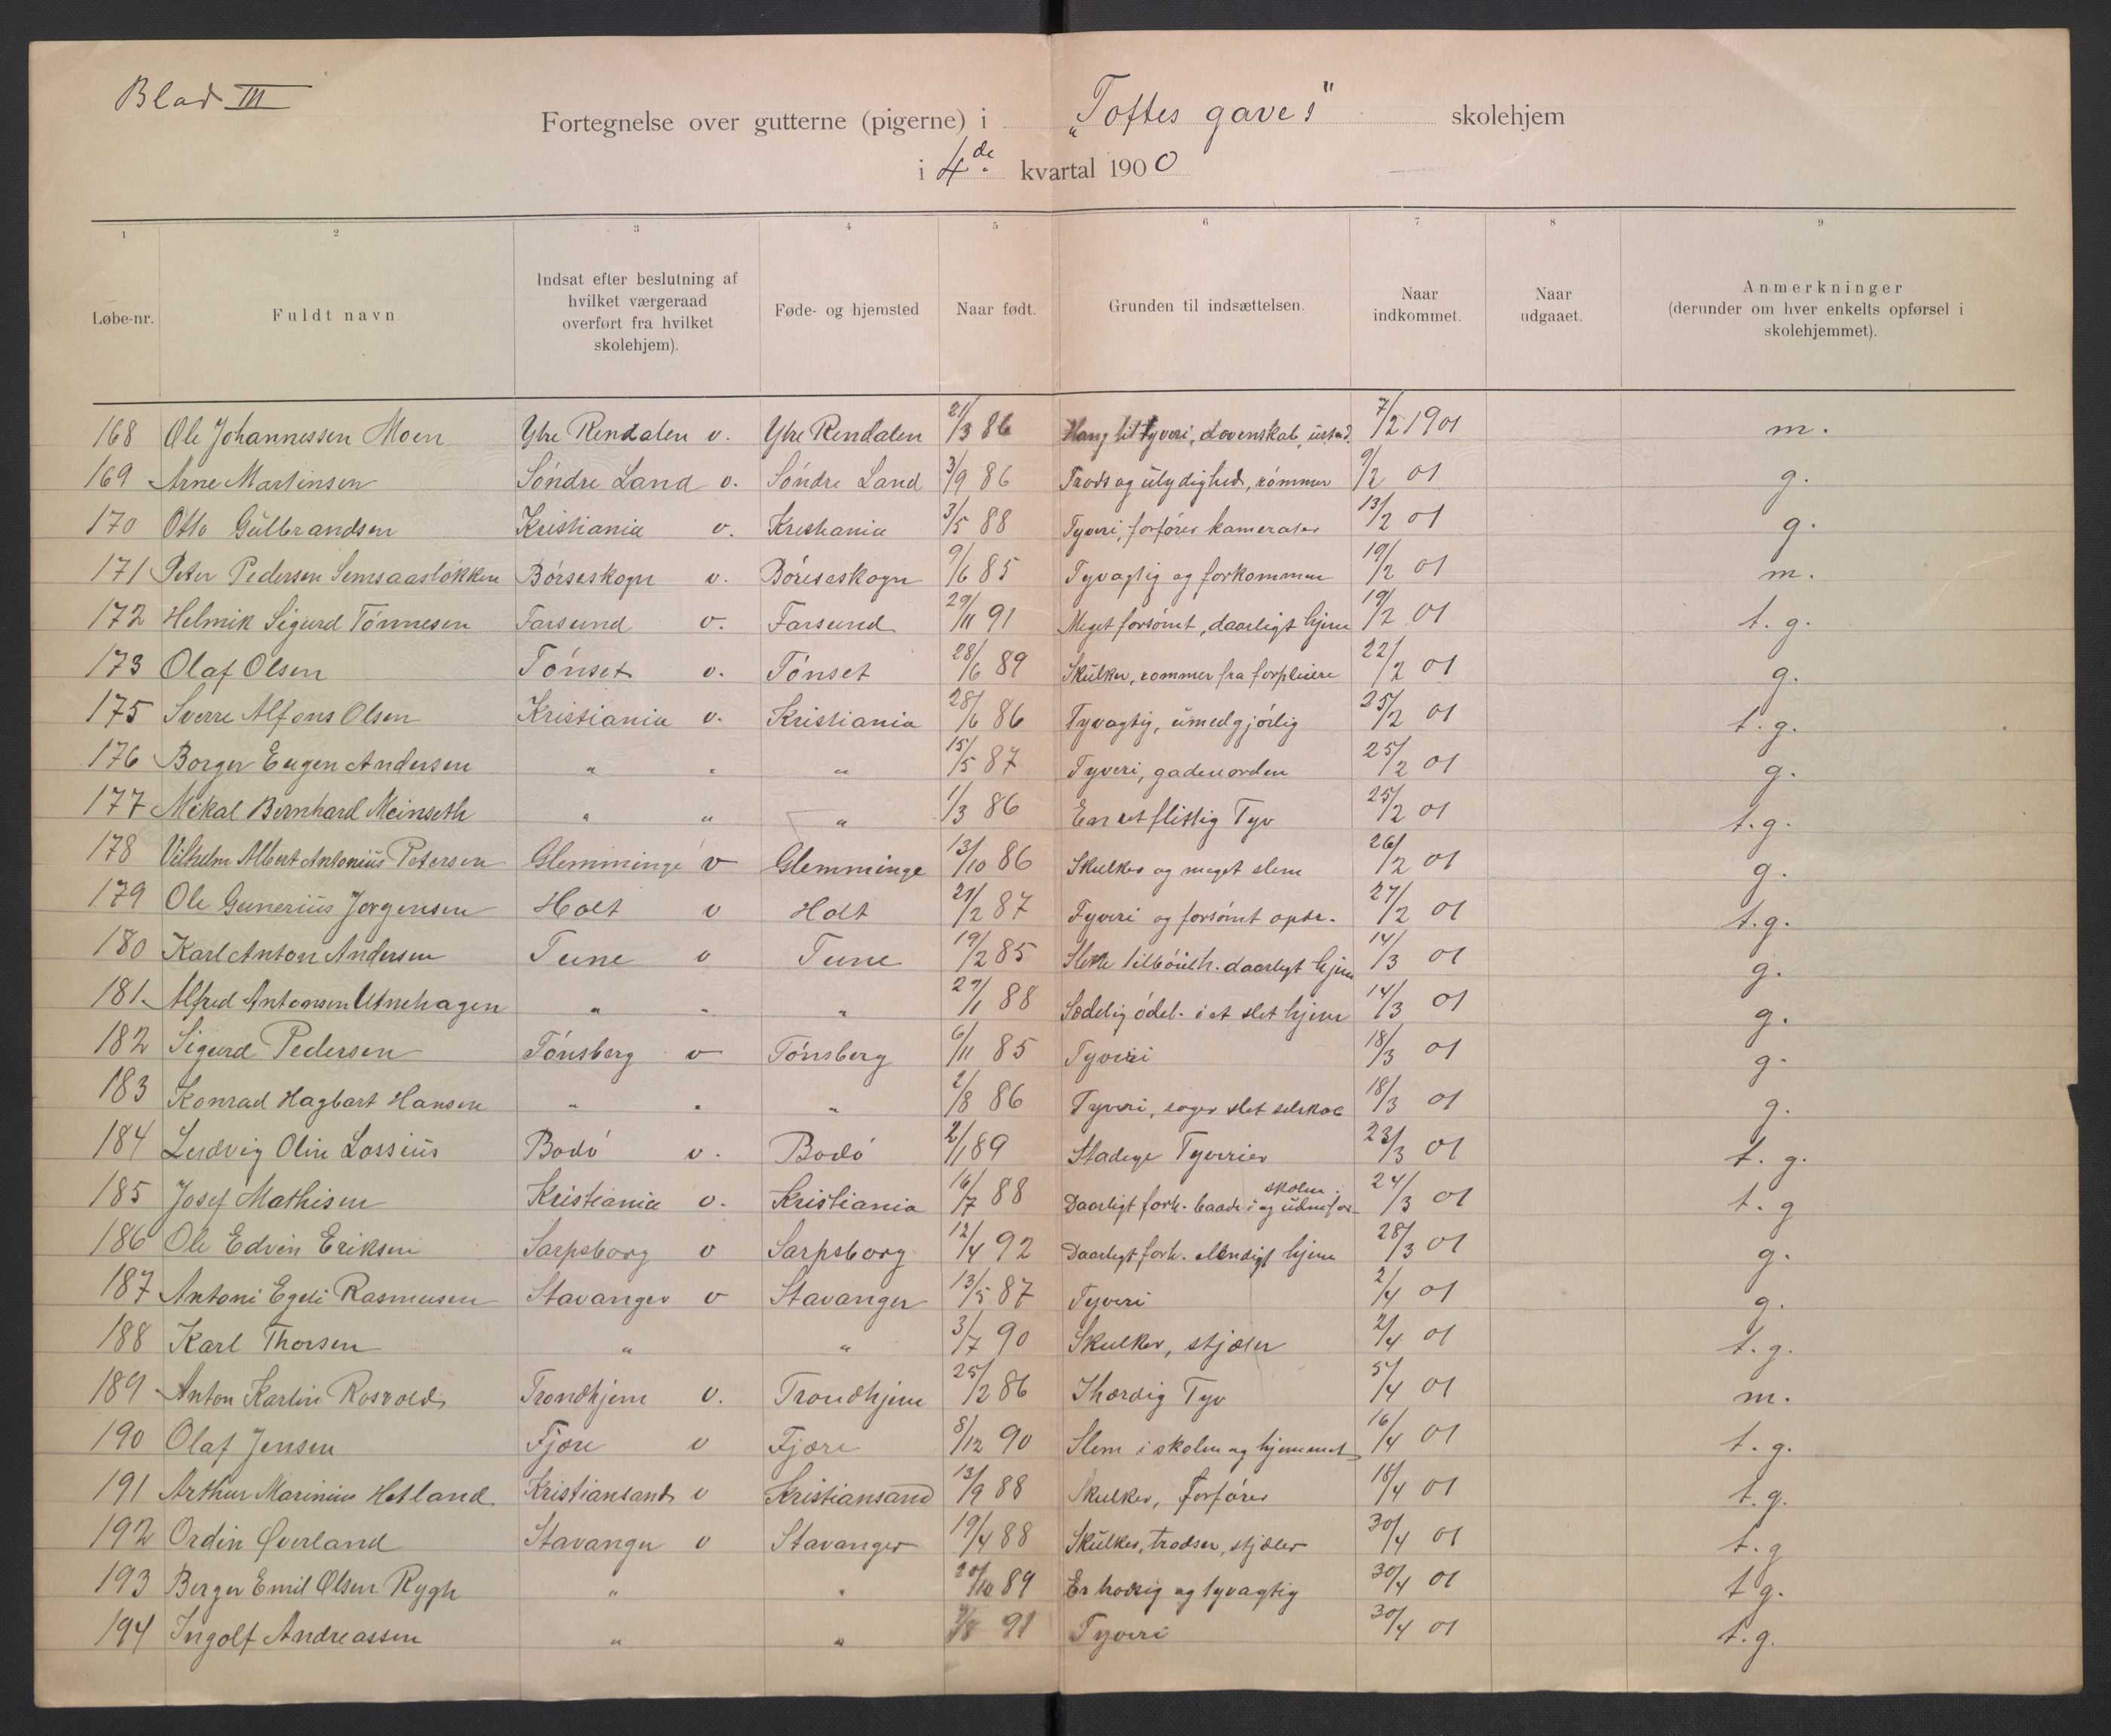 Blad III
Fortegnelse over gutterne (pigerne) i „Toftes gaves" skolehjem
i 4de kvartal 1900
1 2 3 4 5 6 7 8 9
Løbe-nr. Fuldt navn Indsat efter beslutning af hvilket værgeraad overført fra hvilket skolehjem). Føde- og hjemsted Naar født. Grunden til indsættelsen. Naar indkommet. Naar udgaaet. Anmerkninger (derunder om hver enkelts opførsel i skolehjemmet).
168 Ole Johannessen Moen Ytre Rendalen v. Ytre Rendalen 21/3 86 Hang til tyveri, dovenskab, 7/2 1901 m.
169 Arne Martinsen Söndre Land v. Söndre Land 3/9 86 Trods og ulydighed, römmer 9/2 01 g.
170 Otto Gulbrandsen Kristiania v. Kristiania 3/5 88 Tyveri, forförer kamerater 13/2 01 g.
171 Peter Pedersen Semsaaslökken Börseskogn v. Börseskogn 9/6 85 Tyvagtig og forkommen 19/2 01 m.
172 Helmik Sigurd Tönnesen Farsund v. Farsund 29/11 91 Meget forsömt, daarligt hjem 19/2 01 t. g.
173 Olaf Olsen Tönset v. Tönset 28/6 89 Skulker, römmer fra forpleiere 22/2 01 g.
175 Sverre Alfons Olsen Kristiania v. Kristiania 28/6 86 Tyvagtig, umedgjörlig 25/2 01 t. g.
176 Borger Eugen Andersen " " " 15/5 87 Tyveri, gadeuorden 25/2 01 g.
177 Mikal Bernhard Meinseth " " " 1/3 86 En ret flittig Tyv 25/2 01 t. g.
178 Vilhelm Albert Antonius Petersen Glemminge v Glemminge 13/10 86 Skulker og meget slem 26/2 01 g.
179 Ole Gunerius Jorgensen Holt v Holt 21/2 87 Tyveri og forsömt opdr. 27/2 01 t. g.
180 Karl Anton Andersen Tune v Tune 19/2 85 Slette tilböieth. daarligt hjem 14/3 01 g.
181 Alfred Antonsen Utnehagen " " " 27/1 88 Sædelig ödel. i et slet hjem 14/3 01 g.
182 Sigurd Pedersen Tönsberg v Tönsberg 6/11 85 Tyveri 18/3 01 g.
183 Konrad Hagbart Hansen " " " 2/8 86 Tyveri, söger slet selskab 18/3 01 g.
184 Ludvig Olin Lossius Bodö v. Bodö 2/1 89 Stadige Tyverier 23/3 01 t. g.
185 Josef Mathisen Kristiania v. Kristiania 16/7 88 Daarligt forh. baade i og udenfor skolen 24/3 01 t. g
186 Ole Edvin Eriksen Sarpsborg v Sarpsborg 12/4 92 Daarligt forh. elendigt hjem 28/3 01 g.
187 Antoni Egeli Rasmusen Stavanger v Stavanger 13/5 87 Tyveri 2/4 01 g.
188 Karl Thorsen " " 3/7 90 Skulker, stjæler 2/4 01 t. g.
189 Anton Karlin Rosvold Trondhjem v. Trondhjem 25/2 86 Ihærdig Tyv 5/4 01 m.
190 Olaf Jensen Fjære v Fjære 8/12 90 Slem i skolen og hjemmet 16/4 01 t. g.
191 Arthur Marinius Hetland Kristiansand v Kristiansand 13/9 88 Skulker, forförer 18/4 01 t. g.
192 Ordin Øverland Stavanger v Stavanger 19/4 88 Skulker, trodser, stjæler 30/4 01 t. g
193 Berger Emil Olsen Rygh " " 20/10 89 Er trodsig og tyvagtig 30/4 01 t g.
194 Ingolf Andreassen " " 91 Tyveri 30/4 01 t. g.